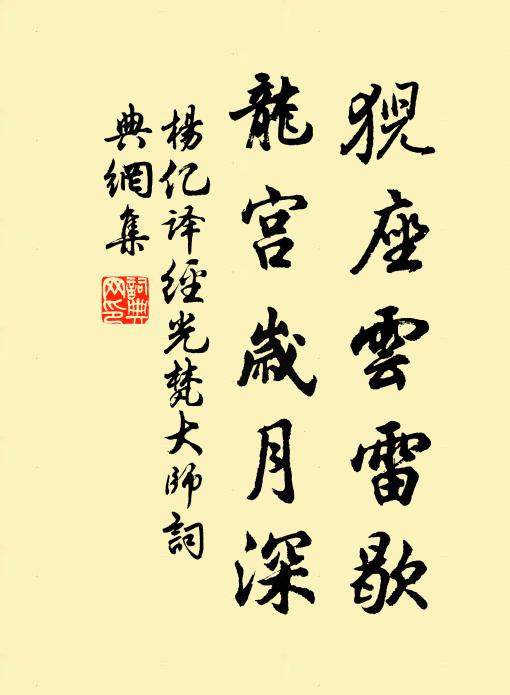 猊座雲雷歇
龍宮歲月深
楊亿译經光梵大師詞
典網集
詞典网印